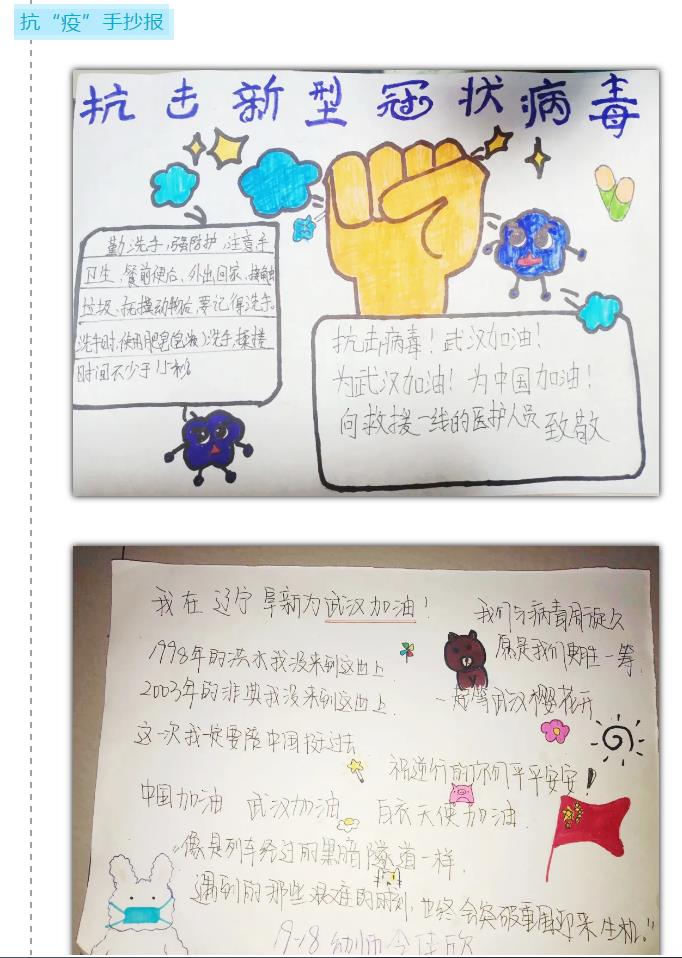 抗“疫”手抄报
抗击新型冠状病毒
勤洗手,强防护,注意手
卫生、餐前便后、外出回家、接触
垃圾、抚摸动物后,要记得洗手。
洗手时,使用肥皂(皂液)洗手,揉搓
时间不少于15秒
抗击病毒!武汉加油!
为武汉加油!为中国加油!
向救援一线的医护人员致敬
我在辽宁阜新为武汉加油!
我们与病毒周旋久
愿是我们更胜一筹
1998年的洪水我没来到这世上
2003年的非典我没来到这世上
一起等武汉樱花开
这一次我一定要陪中国挺过去
祝逆行的你们平平安安!
中国加油 武汉加油 白衣天使加油
“像是列车经过的黑暗隧道一样,
遇到的那些艰难的时刻,也终会突破重围迎来生机。”
19-18 幼师